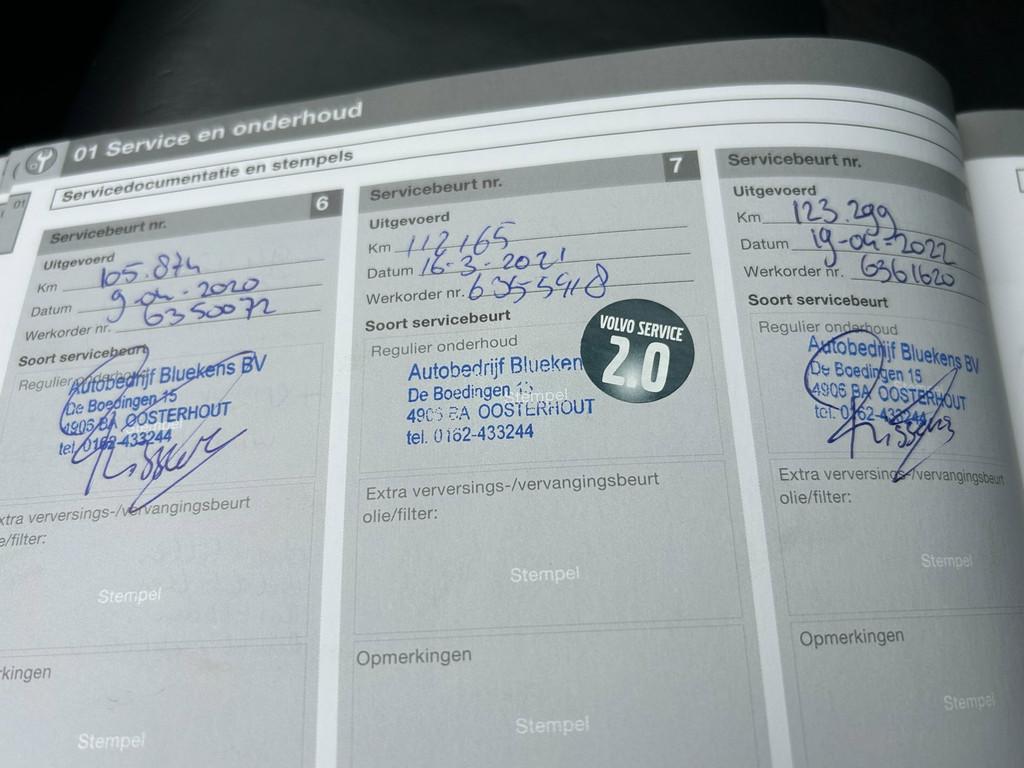 01 Service en onderhoud
Servicedocumentatie en stempels
01
Servicebeurt nr. 6
Uitgevoerd
Km 105.874
Datum 9-04-2020
Werkorder nr. 6350072
Soort servicebeurt
Regulier onderhoud
Autobedrijf Bluekens BV
De Boedingen 15
4906 BA OOSTERHOUT
tel. 0162-433244
xtra verversings-/vervangingsbeurt
e/filter:
Stempel
rkingen
Stempel
Servicebeurt nr. 7
Uitgevoerd
Km 112165
Datum 16-3-2021
Werkorder nr. 6355918
Soort servicebeurt
Regulier onderhoud
VOLVO SERVICE
2.0
Autobedrijf Blueken
De Boedingen 15
4906 BA OOSTERHOUT
Stempel
tel. 0162-433244
Extra verversings-/vervangingsbeurt
olie/filter:
Stempel
Opmerkingen
Stempel
Servicebeurt nr.
Uitgevoerd
Km 123.299
Datum 19-04-2022
Werkorder nr. 6361620
Soort servicebeurt
Regulier onderhoud
Autobedrijf Bluekens BV
De Boedingen 15
4906 BA OOSTERHOUT
tel. 0162-433244
Extra verversings-/vervangingsbeurt
olie/filter:
Stempel
Opmerkingen
Stempel